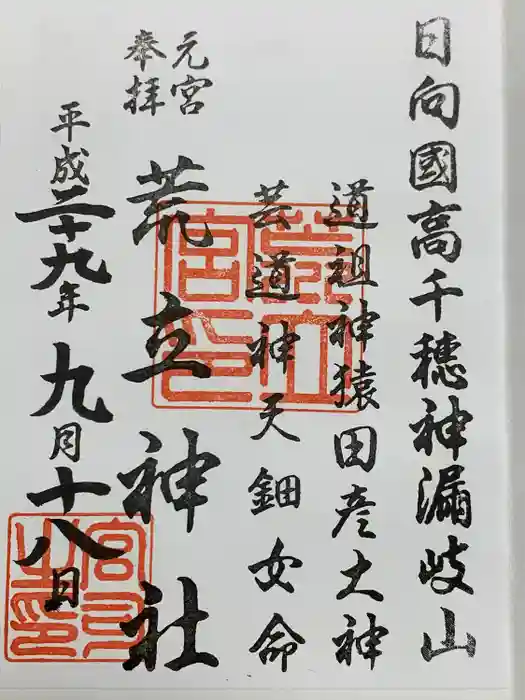 日向國高千穂神漏岐山
道祖神猿田彦大神
芸道神天鈿女命
元宮
奉拝
荒立神社
平成二十九年九月十八日
荒立宮印
宮司之印